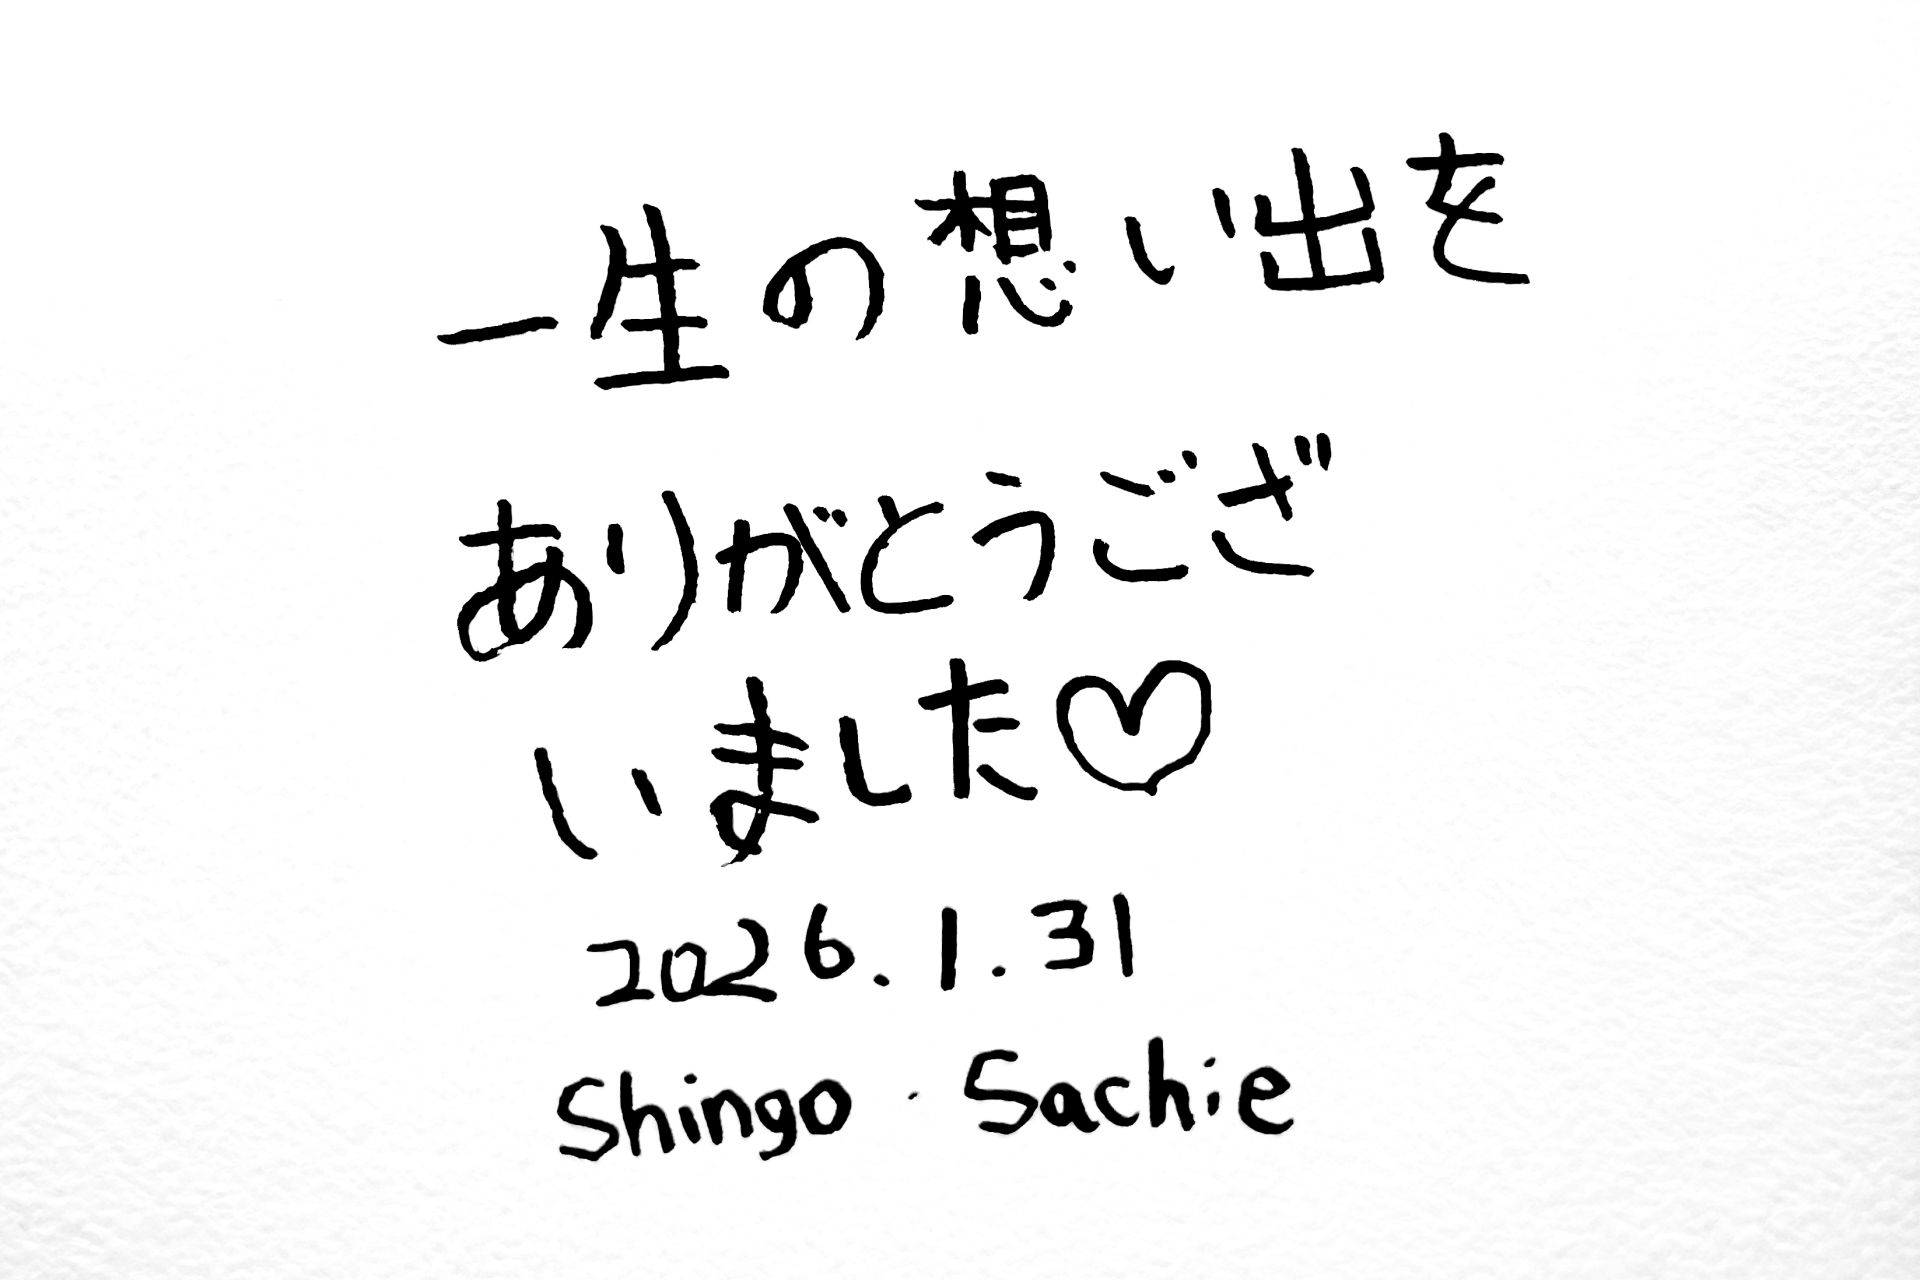 一生の想い出を
ありがとうござ
いました♡
2026.1.31
Shingo・Sachie